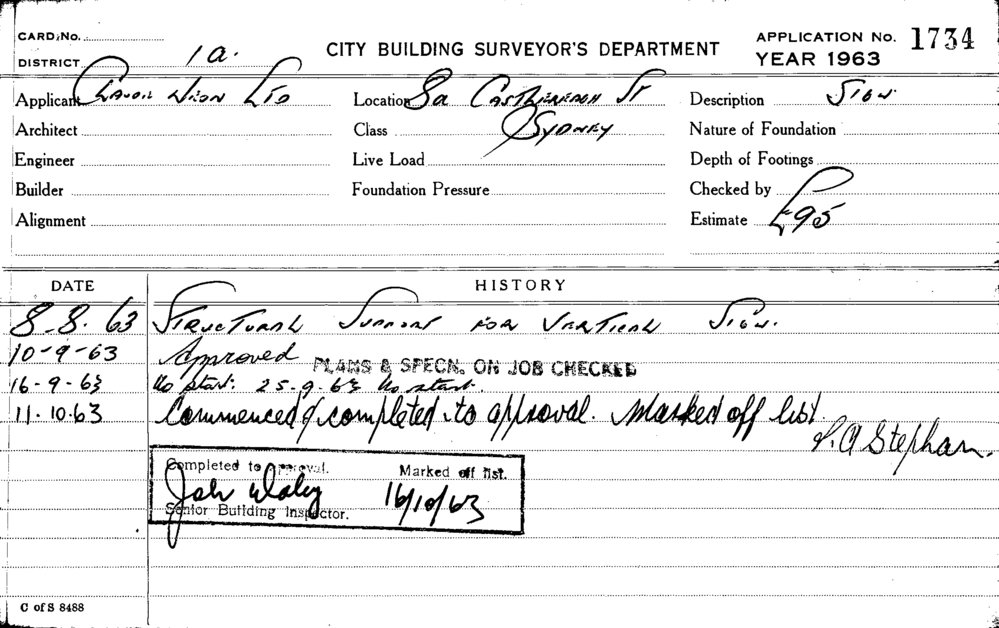 CARD No.
DISTRICT 1a.
CITY BUILDING SURVEYOR'S DEPARTMENT
APPLICATION No. 1734
YEAR 1963
Applicant Claude Neon Ltd
Location 8a Castlereagh St
Description Sign.
Architect
Class Sydney
Nature of Foundation
Engineer
Live Load
Depth of Footings
Builder
Foundation Pressure
Checked by
Alignment
Estimate £95
DATE HISTORY
8-8-63 Structural Support for Vertical Sign.
10-9-63 Approved PLANS & SPECN. ON JOB CHECKED
16-9-63 No start: 25-9-63 No start.
11-10-63 Commenced & completed to approval. Marked off list.
Stephan.
Completed to Approval. Marked off list.
16/10/63
Senior Building Inspector.
C of S 8488